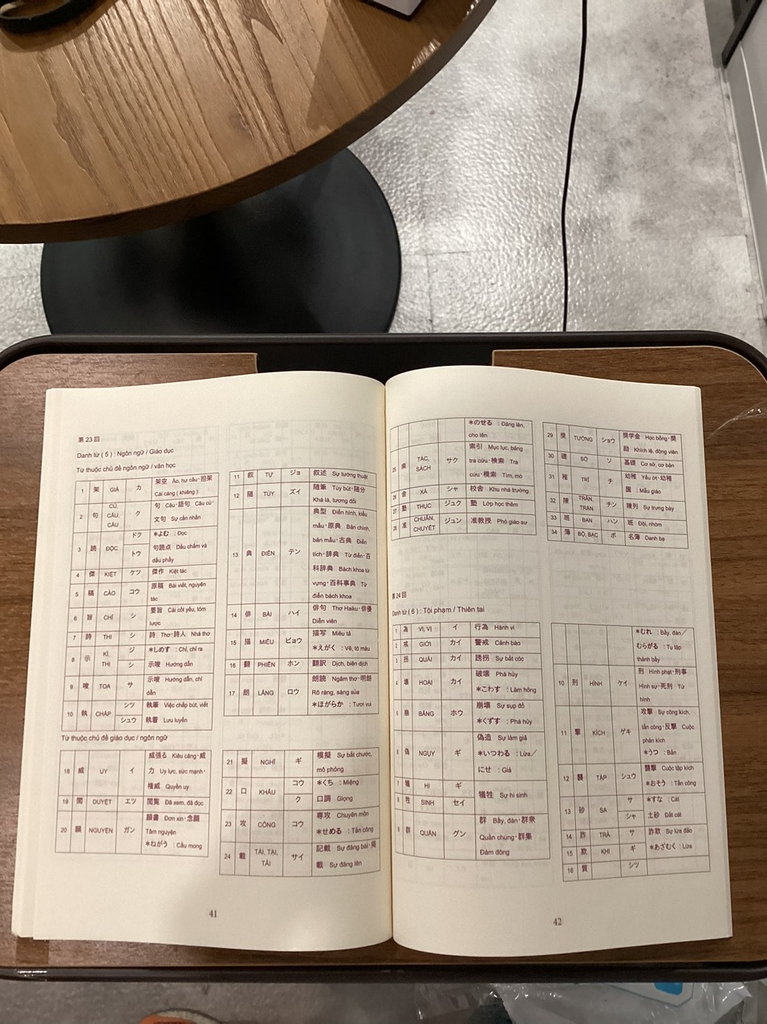 第 23 回
Danh từ ( 5 ) : Ngôn ngữ / Giáo dục
Từ thuộc chủ đề ngôn ngữ / văn học
1 架 GIÁ カ 架空 Ảo, hư cấu・担架
Cái cáng ( khiêng )
2 句 CÚ, CÂU, CẤU ク 句 Câu・語句 Câu cú・
文句 Sự cằn nhằn
3 読 ĐỘC ドク ＊よむ : Đọc
トウ 句読点 Dấu chấm và
dấu phẩy
4 傑 KIỆT ケツ 傑作 Kiệt tác
5 稿 CẢO コウ 原稿 Bài viết, nguyên
tác
6 旨 CHỈ シ 要旨 Cái cốt yếu, tóm
lược
7 詩 THI シ 詩 Thơ・詩人 Nhà thơ
8 示 KÌ, THỊ ジ ＊しめす : Chỉ, chỉ ra
シ 示唆 Hướng dẫn
9 唆 TOA サ 示唆 Hướng dẫn, chỉ
dẫn
10 執 CHẤP シツ 執筆 Việc chấp bút, viết
シュウ 執着 Lưu luyến
11 叙 TỰ ジョ 叙述 Sự tường thuật
12 随 TÙY ズイ 随筆 Tùy bút・随分
Khá là, tương đối
13 典 ĐIỂN テン 典型 Điển hình, kiểu
mẫu・原典 Bản chính,
bản mẫu・古典 Điển
tích・辞典 Từ điển・百
科辞典 Bách khoa từ
vựng・百科事典 Từ
điển bách khoa
14 俳 BÀI ハイ 俳句 Thơ Haiku・俳優
Diễn viên
15 描 MIÊU ビョウ 描写 Miêu tả
＊えがく : Vẽ, tô màu
16 翻 PHIÊN ホン 翻訳 Dịch, biên dịch
17 朗 LÃNG ロウ 朗読 Ngâm thơ・明朗
Rõ ràng, sáng sủa
＊ほがらか : Tươi vui
Từ thuộc chủ đề giáo dục / ngôn ngữ
18 威 UY イ 威張る Kiêu căng・威
力 Uy lực, sức mạnh・
権威 Quyền uy
19 閲 DUYỆT エツ 閲覧 Đã xem, đã đọc
20 願 NGUYỆN ガン 願書 Đơn xin・念願
Tâm nguyện
＊ねがう : Cầu mong
21 擬 NGHĨ ギ 模擬 Sự bắt chước,
mô phỏng
22 口 KHẨU コウ ＊くち : Miệng
ク 口調 Giọng
23 攻 CÔNG コウ 専攻 Chuyên môn
＊せめる : Tấn công
24 載 TẢI, TẠI, TÁI サイ 記載 Sự đăng bài・掲
載 Sự đăng lên
41
＊のせる : Đăng lên,
cho lên
25 索 TÁC, SÁCH サク 索引 Mục lục, bảng
tra cứu・検索 Tra
cứu・模索 Tìm, mò
26 舎 XÁ シャ 校舎 Khu nhà trường
27 塾 THỤC ジュク 塾 Lớp học thêm
28 准 CHUẨN, CHUYẾT ジュン 准教授 Phó giáo sư
29 奨 TƯỞNG ショウ 奨学金 Học bổng・奨
励 Khích lệ, động viên
30 礎 SỞ ソ 基礎 Cơ sở, cơ bản
31 稚 TRĨ チ 幼稚 Yếu ớt・幼稚
園 Mẫu giáo
32 陳 TRẦN, TRẬN チン 陳列 Sự trưng bày
33 班 BAN ハン 班 Đội, nhóm
34 簿 BỘ, BẠC ボ 名簿 Danh bạ
第 24 回
Danh từ ( 6 ) : Tội phạm / Thiên tai
1 為 VI, VỊ イ 行為 Hành vi
2 戒 GIỚI カイ 警戒 Cảnh báo
3 拐 QUẢI カイ 誘拐 Sự bắt cóc
4 壊 HOẠI カイ 破壊 Phá hủy
＊こわす : Làm hỏng
5 崩 BĂNG ホウ 崩壊 Sự sụp đổ
＊くずす : Phá hủy
6 偽 NGỤY ギ 偽造 Sự làm giả
＊いつわる : Lừa／
にせ : Giả
7 犠 HI ギ 犠牲 Sự hi sinh
8 牲 SINH セイ
9 群 QUẦN グン 群 Bầy, đàn・群衆
Quần chúng・群集
Đám đông
＊むれ : Bầy, đàn／
むらがる : Tụ tập
thành bầy
10 刑 HÌNH ケイ 刑 Hình phạt・刑事
Hình sự・死刑 Tử
hình
11 撃 KÍCH ゲキ 攻撃 Sự công kích,
tấn công・反撃 Cuộc
phản kích
＊うつ : Bắn
12 襲 TẬP シュウ 襲撃 Cuộc tập kích
＊おそう : Tấn công
13 砂 SA サ ＊すな : Cát
シャ 土砂 Đất cát
14 詐 TRÁ サ 詐欺 Sự lừa đảo
15 欺 KHI ギ ＊あざむく : Lừa
16 質 シツ
42